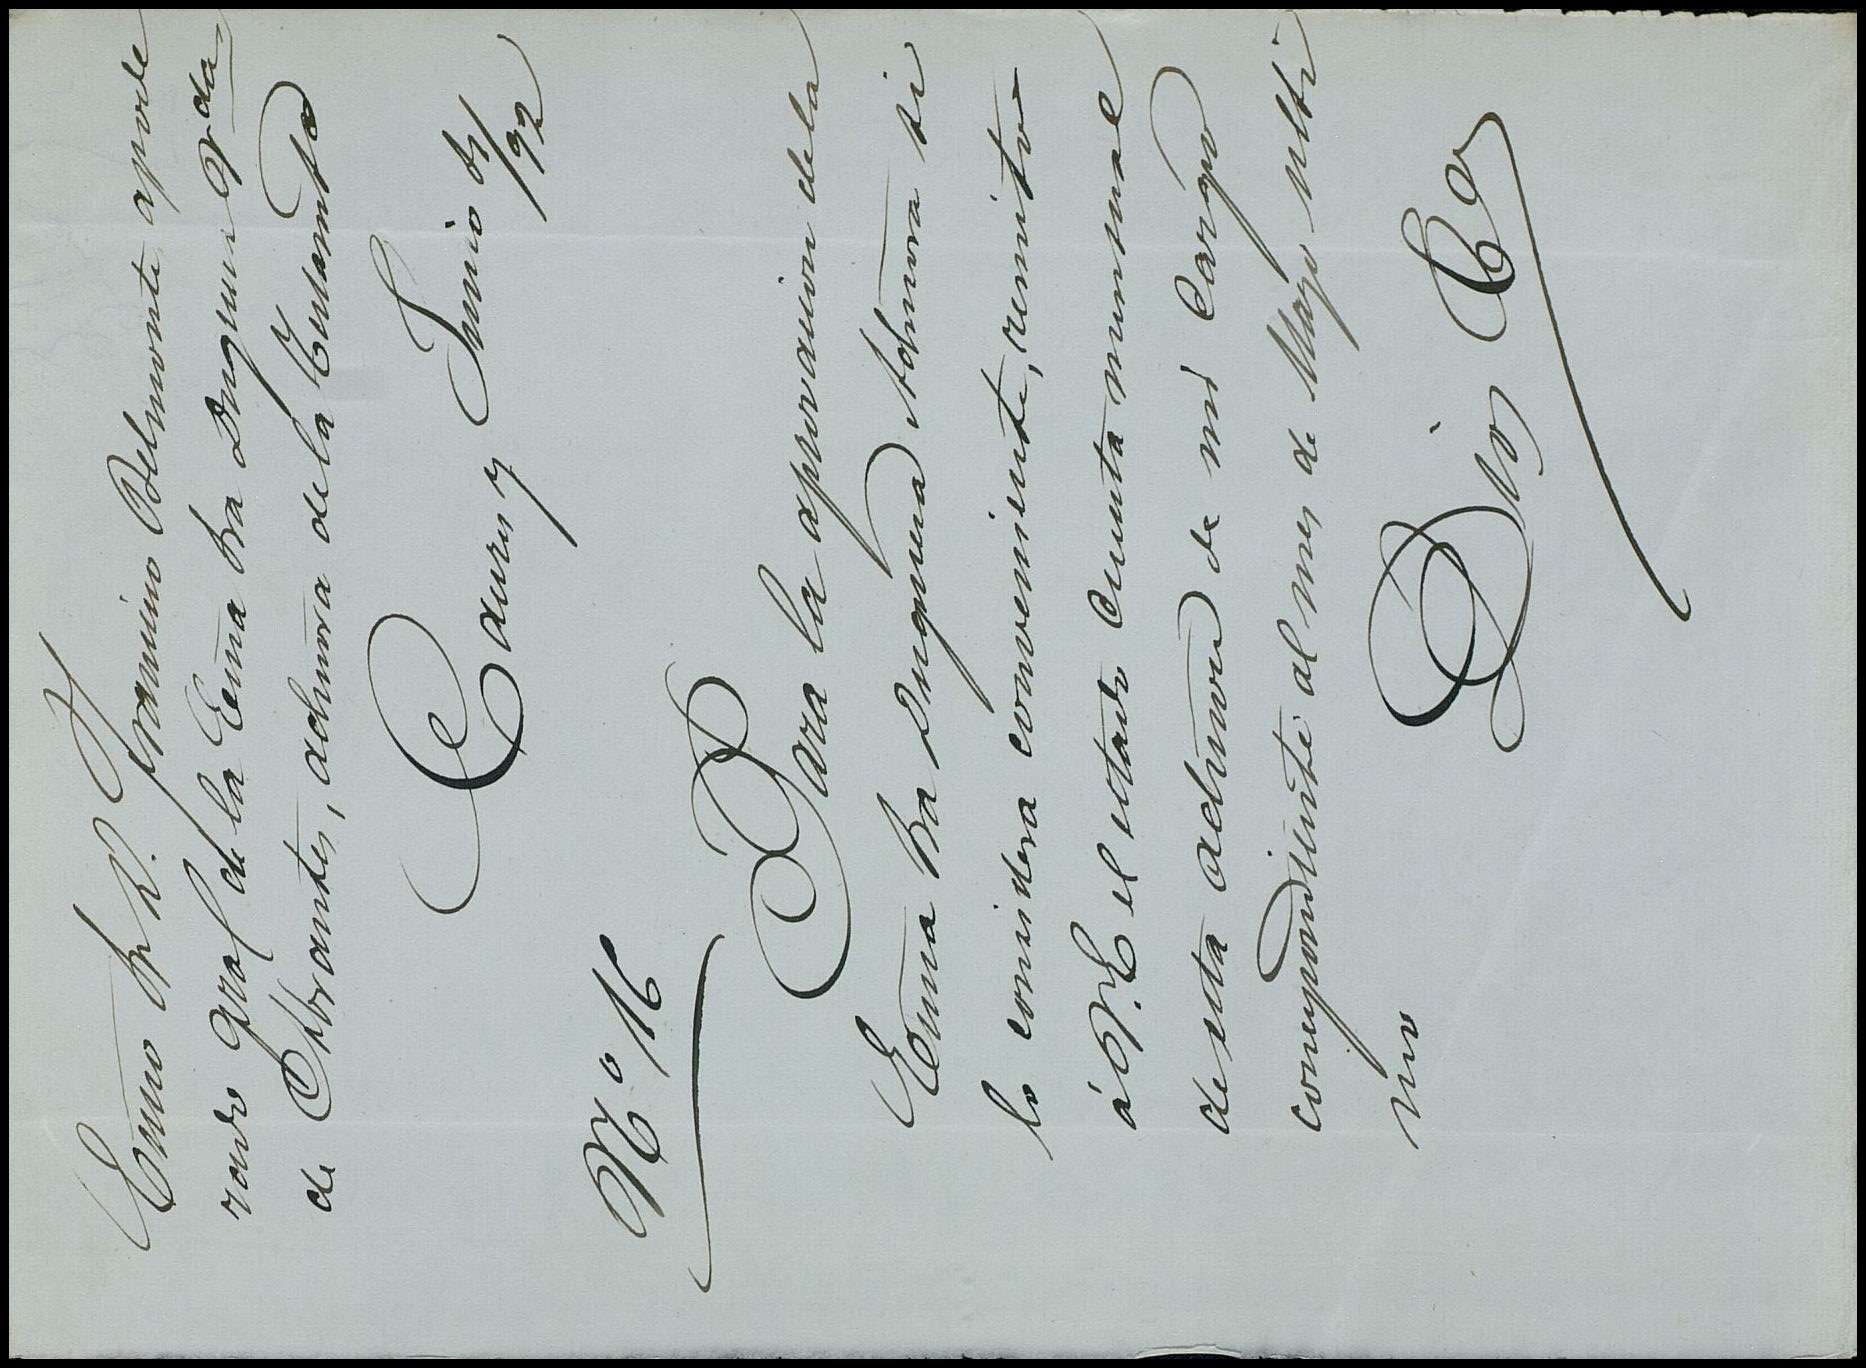 Excmo Sr D. Francisco Belmonte apode
rado Gral de la Ecma Sra Duquesa Vda
de Abrantes, admora de la Encomda
Caurs y Junio 4/92
No 16
Para la aprovacion de la
Ecma Sra Duquesa Admora si
lo considera conveniente, remito
á V.E el estado Cuenta mensual
de esta admon de mi Cargo
correspondiente al mes de Mayo ulti
mo
Dios &a